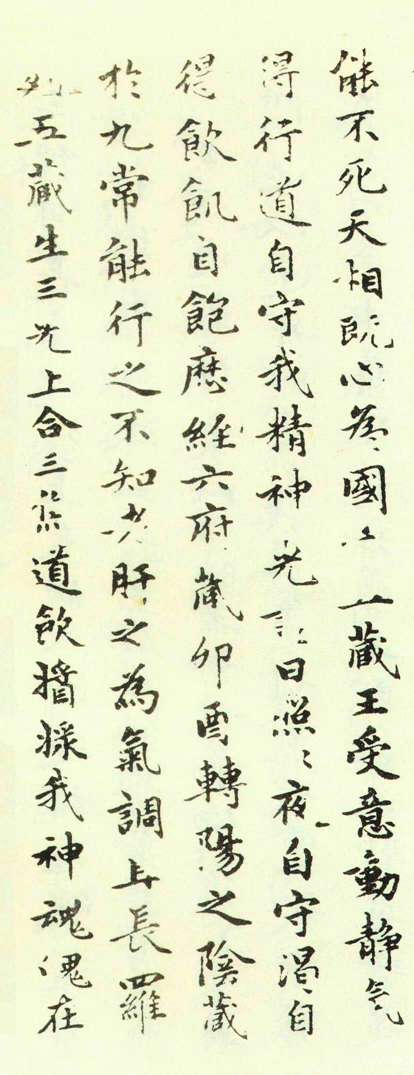 能不死天相既心為國藏王受意動静气
得行道自守我精神光日照々夜自守渴自
得飲飢自飽歷經六府藏卯酉轉陽之陰藏
於九常能行之不知老肝之為氣調且長羅
五藏生三光上合三焦道飲醬漿我神魂魄在